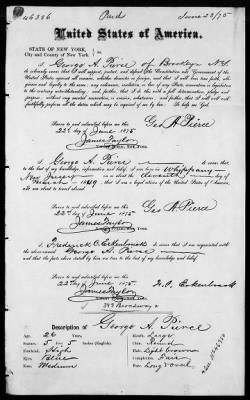 46386
June 23/75
United States of America.
STATE OF NEW YORK,
City and County of New York, ss.
I, George A. Pierce of Brooklyn N.Y.
do solemnly swear that I will support, protect, and defend the Constitution and Government of the
United States against all enemies, whether domestic or foreign, and that I will bear true faith, alle-
giance and loyalty to the same, any ordinance, resolution or law of any State convention or legislation
to the contrary notwithstanding; and further, that I do this with a full determination, pledge and
purpose, without any mental reservation or evasion, whatsoever; and further, that I will well and
faithfully perform all the duties which may be required of me by law. So help me God.
Sworn to and subscribed before me this
22d day of June 1875
Geo A. Pierce
James Taylor
I, George A. Pierce do swear that,
to the best of my knowledge, information and belief, I was born in Whippany
New Jersey on or about the day of
March 1849 and that I am a loyal citizen of the United States of America,
and am about to travel abroad.
Sworn to and subscribed before me this
22d day of June 1875
Geo A. Pierce
James Taylor
I, Frederick O. do swear that I am acquainted with the
above named George A. Pierce
and that the facts above stated by him are true to the best of my knowledge and belief.
Sworn to and subscribed before me this
22d day of June 1875
James Taylor
Broadway
Description of George A. Pierce
Age, 26
Stature, 5 Feet 5 Inches (English).
Forehead, High
Eyes, Blue
Nose, Medium
Mouth, Large
Chin, Round
Hair, Light brown
Complexion, Fair
Face, Long & oval